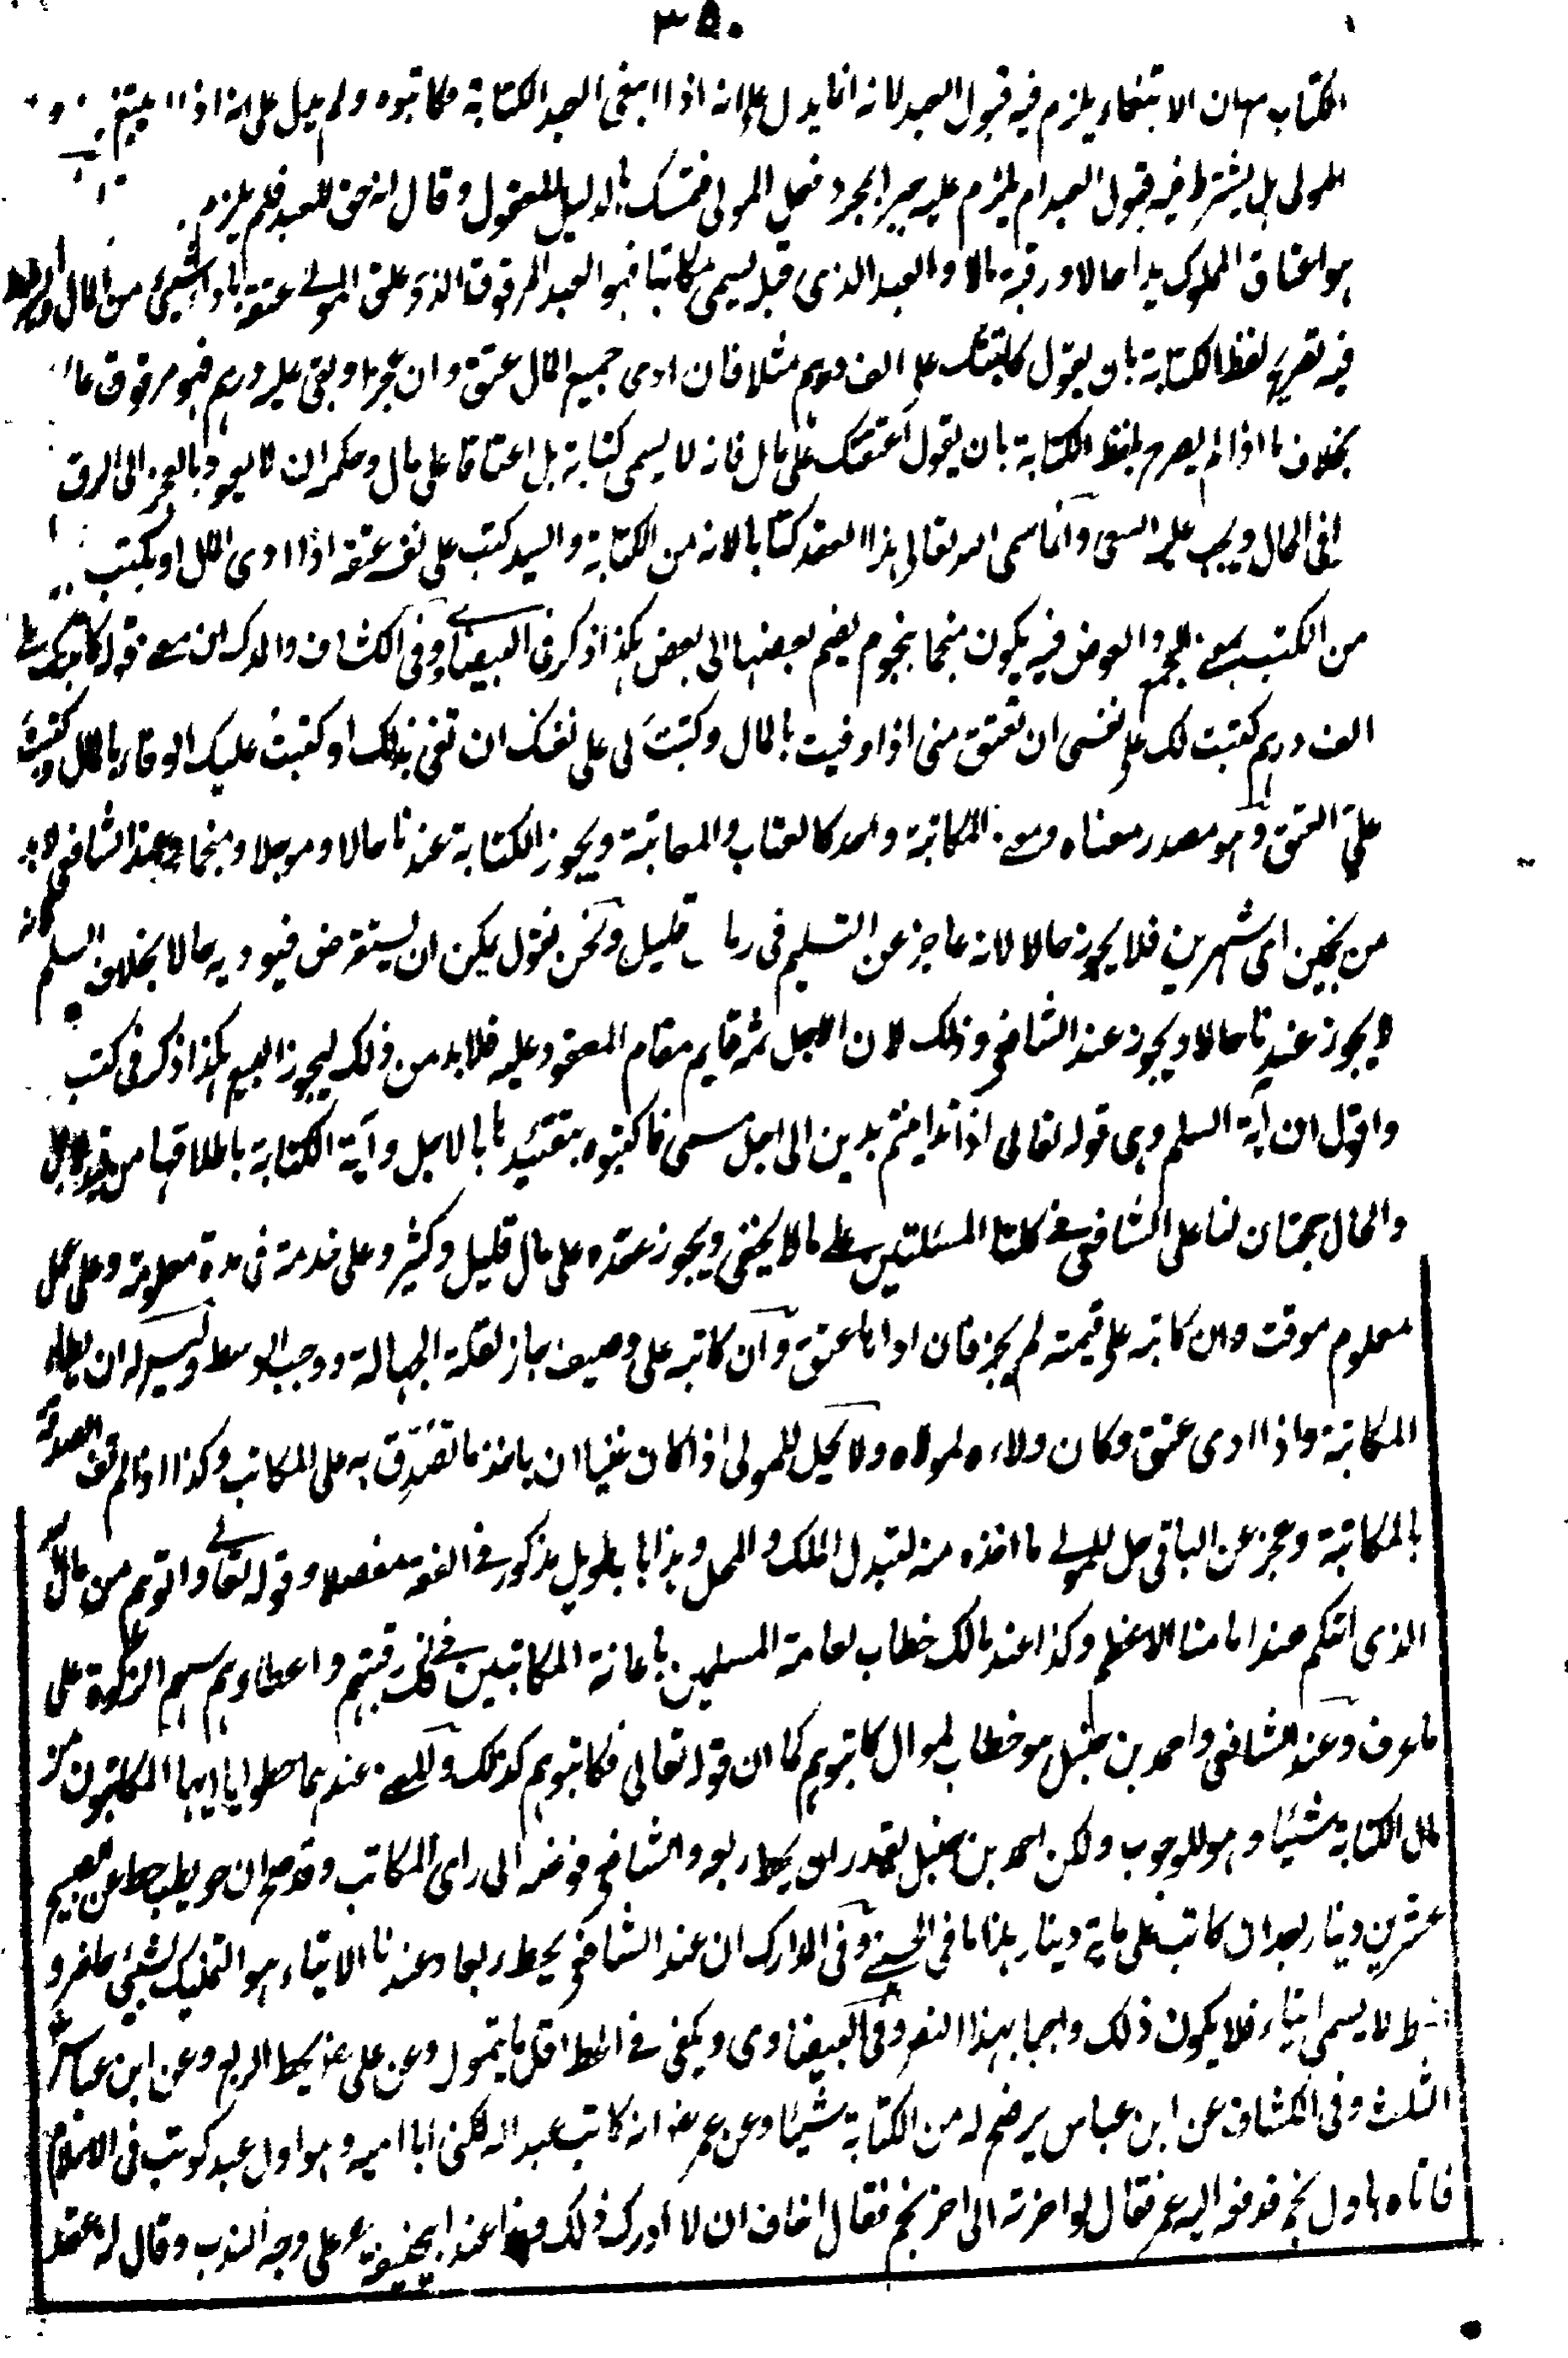 ٣٥٠
الكتاب سيان الابتغاء يلزم فيه قبول العبد لانه انما يدل على انه اذا ابتغى العبد الكتابة فكاتبوه ولم يدل على انه اذا لم يبتغ
المولى هل يشترط فيه قبول العبد ام يلزم عليه جبرا بمجرد فعل المولى فتمسك بالدليل المعقول وقال انه حق للعبد فلم يلزم
هو اعتاق المملوك يدا حالا ورقبة مالا والعبد الذى قبله يسمى مكاتبا فهو العبد المرقوق الذى علق المولى عتقه باداء شيئ من المال
فيه تصريح لفظ الكتابة بان يقول كاتبتك على الف درهم مثلا فان ادى جميع المال عتق وان عجز او بقى عليه درهم فهو مرقوق
بخلاف ما اذا لم يصرح بلفظ الكتابة بان يقول اعتقتك على مال فانه لا يسمى كتابة بل اعتاقا على مال وحكمه ان لا يعود بالعجز الى الرق
فى المال ويجب عليه السعى وانما سمى الله تعالى هذا العقد كتابا لانه من الكتابة والسيد كتب على نفسه عتقه اذا ادى المال او يكتب
من الكتب بمعنى الجمع والعوض فيه يكون منجما بنجوم يضم بعضها الى بعض هكذا ذكر فى البيضاوى وفى الكشاف والمدارك ان معنى قوله كاتبتك على
الف درهم كتبت لك على نفسى ان تعتق منى اذا وفيت بالمال وكتبت لى على نفسك ان تفى بذلك او كتبت عليك الوفاء بالمال وكتبت
على العتق وهو مصدر معناه ومعنى المكاتبة واحد كالعتاب والمعاتبة ويجوز الكتابة عندنا حالا ومؤجلا ومنجما وعند الشافعى لا بد
من نجمين اى شهرين فلا يجوز حالا لانه عاجز عن التسليم فى زمان قليل ونحن نقول يمكن ان يستقرض فيؤديه حالا بخلاف السلم فانه
لا يجوز عندنا حالا ويجوز عند الشافعى وذلك لان الاجل ثمه قايم مقام المعقود عليه فلا بد من ذلك ليجوز البيع هكذا ذكر فى كتب
واقول ان آية السلم وهى قوله تعالى اذا تداينتم بدين الى اجل مسمى فاكتبوه بتقييدها بالاجل وآية الكتابة باطلاقها من قيد الاجل
والحال حجتان لنا على الشافعى فى كلتا المسئلتين على ما لا يخفى ويجوز عقده على مال قليل وكثير وعلى خدمة فى مدة معلومة وعلى عمل
معلوم موقت وان كاتبه على قيمته لم يجز فان اداها عتق وان كاتبه على وصيف جاز لقلة الجهالة ووجب الوسط وليس له ان يطأ
المكاتبة واذا ادى عتق وكان ولاءه لمولاه ولا يحل للمولى اذا كان غنيا ان ياخذ ما تصدق به على المكاتب وكذا اذا لم تف الصدقة
بالمكاتبة وعجز عن الباقى حل للمولى ما اخذه منه لتبدل الملك والمحل وهذا باب طويل مذكور فى الفقه مفصلا وقوله تعالى واتوهم من مال الله
الذى اتكم عند امامنا الاعظم وكذا عند مالك خطاب لعامة المسلمين باعانة المكاتبين فى فك رقبتهم واعطاوهم سهم الزكوة على
ما عرف وعند الشافعى واحمد بن حنبل هو خطاب لموال كاتبوهم كما ان قوله تعالى فكاتبوهم كذلك والمعنى عندهما حطوا يا ايها المكاتبون من
مال الكتابة شيئا وهو للوجوب ولكن احمد بن حنبل يقدر ان يحط ربعه والشافعى فوضه الى راى المكاتب وقد صح ان حويطب حط عن صبيح
عشرين دينارا بعد ان كاتب على ماية دينار هذا ما فى الحسينى وفى المدارك ان عند الشافعى يحط ربعا وعندنا الايتاء هو التمليك لشيئ حاضر و
الحط لا يسمى ايتاء فلا يكون ذلك واجبا بهذا النص وفى البيضاوى ويكفى فى الحط اقل ما يتمول وعن على رض يحط الربع وعن ابن عباس
الثلث وفى الكشاف عن ابن عباس يرضخ له من الكتابة شيئا وعن عمر رض انه كاتب عبدا له يكنى ابا امية وهو اول عبد كوتب فى الاسلام
فاتاه باول نجم فدفعه اليه عمر فقال لو اخرته الى اخر نجم فقال اخاف ان لا ادرك ذلك وهذا عند ابيحنيفة رح على وجه الندب وقال له عقد